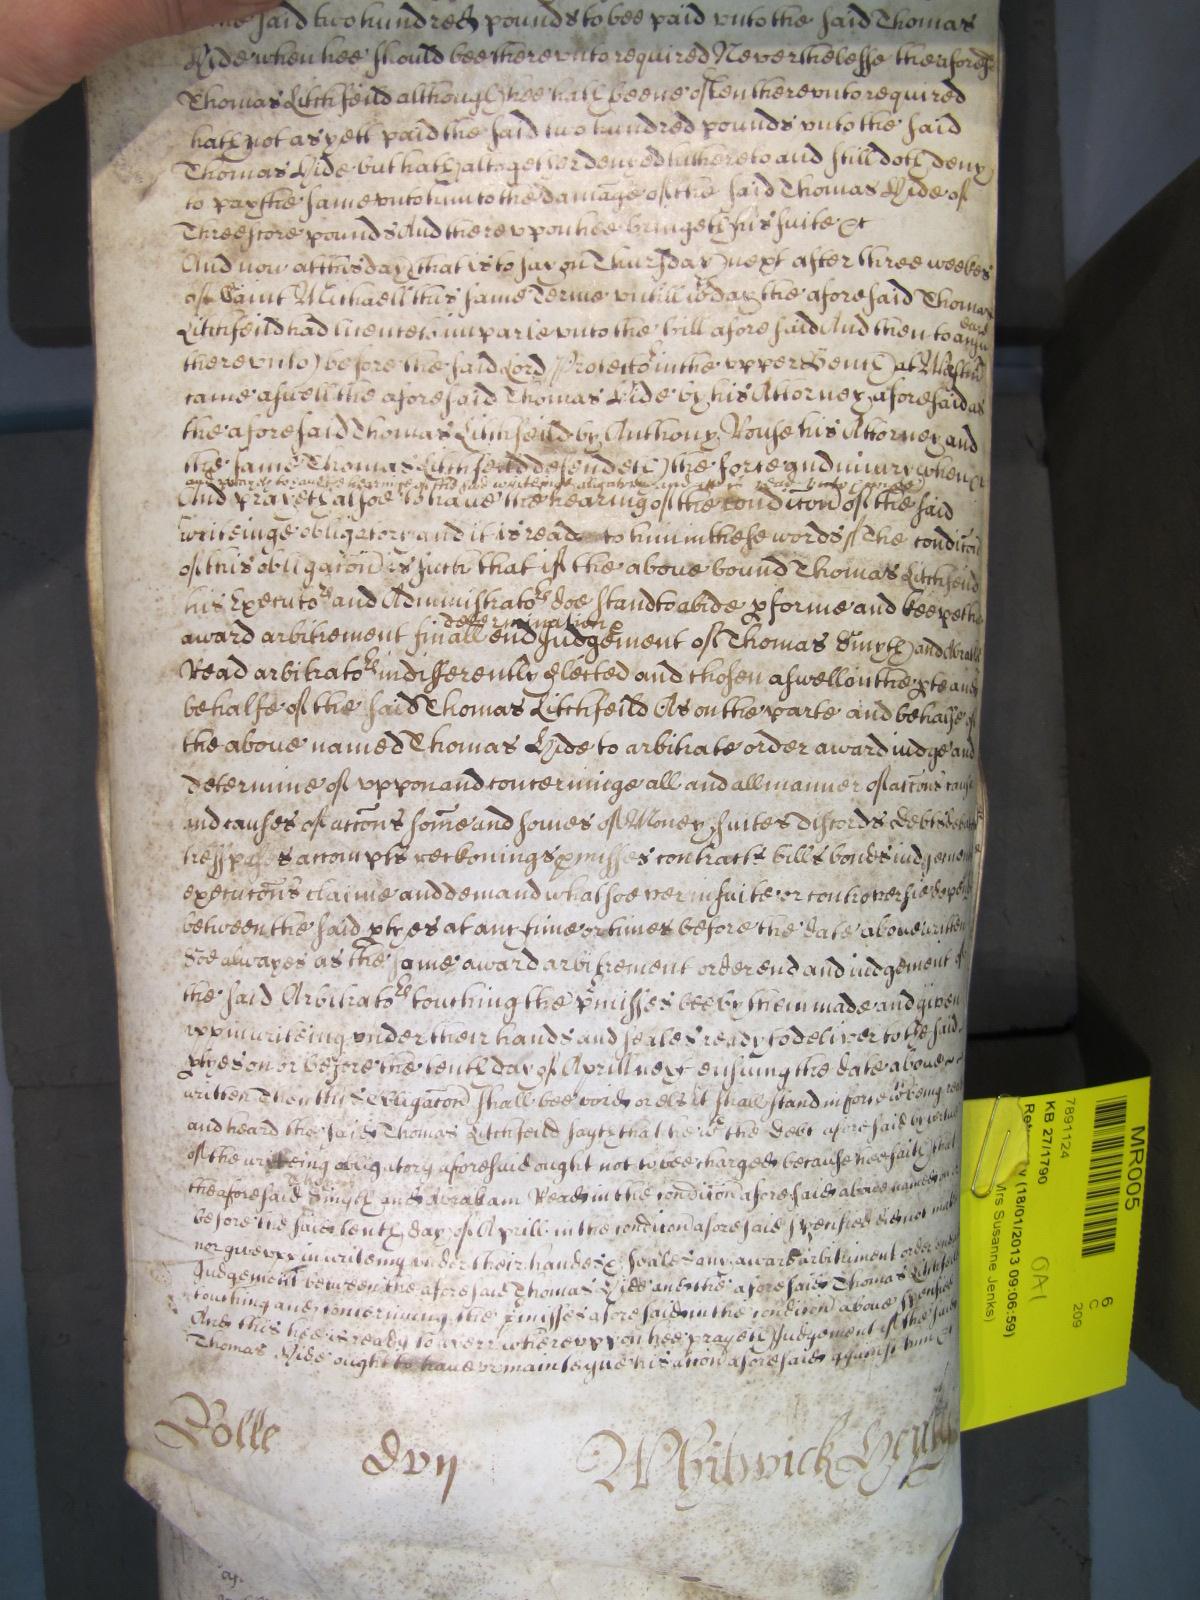 the said two hundred pounds to bee paid vnto the said Thomas
Hide when hee should bee therevnto required Neverthelesse the aforesd
Thomas Litchfeild although hee hath beene often therevnto required
hath not as yett paid the said two hundred pounds vnto the said
Thomas Hide but hath altogether denyed hitherto and still doth deny
to pay the same vnto him to the damage of the said Thomas Hide of
Threescore pounds And therevpon hee bringeth his suite &c
And now at this day that is to say on Thursday next after three weekes
of Saint Michaell this same Terme vntill wch day the aforesaid Thomas
Litchfeild had licence to imparle vnto the bill aforesaid And then to
therevnto before the said Lord Protector in the vpper Bench at Westm
came aswell the aforesaid Thomas Hide by his Attorney aforesaid as
the aforesaid Thomas Litchfeild by Anthony Rouse his Attorney and
the same Thomas Litchfeild defendeth the force and iniury when &c
and prayeth to have the hearing of the said writeinge obligatory and it is read vnto
And prayeth alsoe to have the hearing of the condicon of the said
writeinge obligatory and it is read to him in these words The condicon
of this obligacon is such that if the above bound Thomas Litchfeild
his Executors and Administrators doe stand to abide pforme and keepe the
determination
award arbitrement finall end Judgement of Thomas Smyth and Abraha
Read arbitrators indifferently elected and chosen aswell on the pte and
behalfe of the said Thomas Litchfeild As on the parte and behalfe of
the above named Thomas Hide to arbitrate order award iudge and
determine of vppon and concerninge all and all manner of accons cause
and causes of accons some and somes of Money suites discords debts
tresspasses accompts reckonings pmisses contracts bills bonds iudgements
execucons claime and demand whatsoever in suite or controversie depend
between the said ptyes at any time or times before the date above written
Soe alwayes as the same award arbitrement order end and iudgement of
the said Arbitrators touching the pmisses bee by them made and given
vpp in writeing vnder their hands and seales ready to deliver to the said
ptyes on or before the tenth day of Aprill next ensuing the date above
written Then this obligacon shall bee void or els it shall stand in force wch being read
and heard the said Thomas Litchfeild sayth that hee wth the debt aforesaid by vertue
of the writeing obligatory aforesaid ought not to bee charged because hee saith that
the aforesaid Smyth and Abraham Read in the condicon aforesaid above named on or
before the said tenth day of Aprill in the condicon aforesaid specified did not make
nor give vpp in writeing vnder their handes & seales any award arbitriment order end
Judgement between the aforesaid Thomas Hide and the aforesaid Thomas Litchfeild
touching and concerninge the pmisses aforesaid in the condicon above specified
And this hee is ready to averr wherevppon hee prayeth Judgement if the said
Thomas Hide ought to have or mainteyne his accon aforesaid against him &c
Rolle
Whitwick
MR005
6
C
209
7891124
KB 27/1790
GA1
(18/01/2013 09:06:59)
Mrs Susanne Jenks)